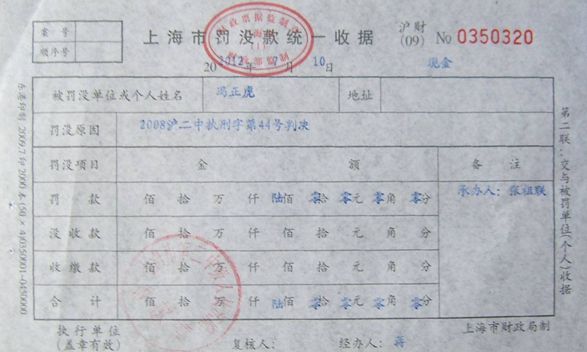 案号
顺序号
上海市罚没款统一收据
沪财
(09)
No 0350320
2012年7月10日
现金
被罚没单位或个人姓名 冯正虎 地址
罚没原因 2008沪二中执刑字第44号判决
罚没项目 金额 备注
罚款 佰 拾 万 仟 陆佰 零拾 零元 零角 零分 承办人：张祖联
没收款 佰 拾 万 仟 佰 拾 元 角 分
收缴款 佰 拾 万 仟 佰 拾 元 角 分
合计 佰 拾 万 仟 陆佰 零拾 零元 零角 零分
执行单位
(盖章有效)
复核人：
经办人：蒋
上海市财政局制
第二联：交与被罚单位(个人)收据